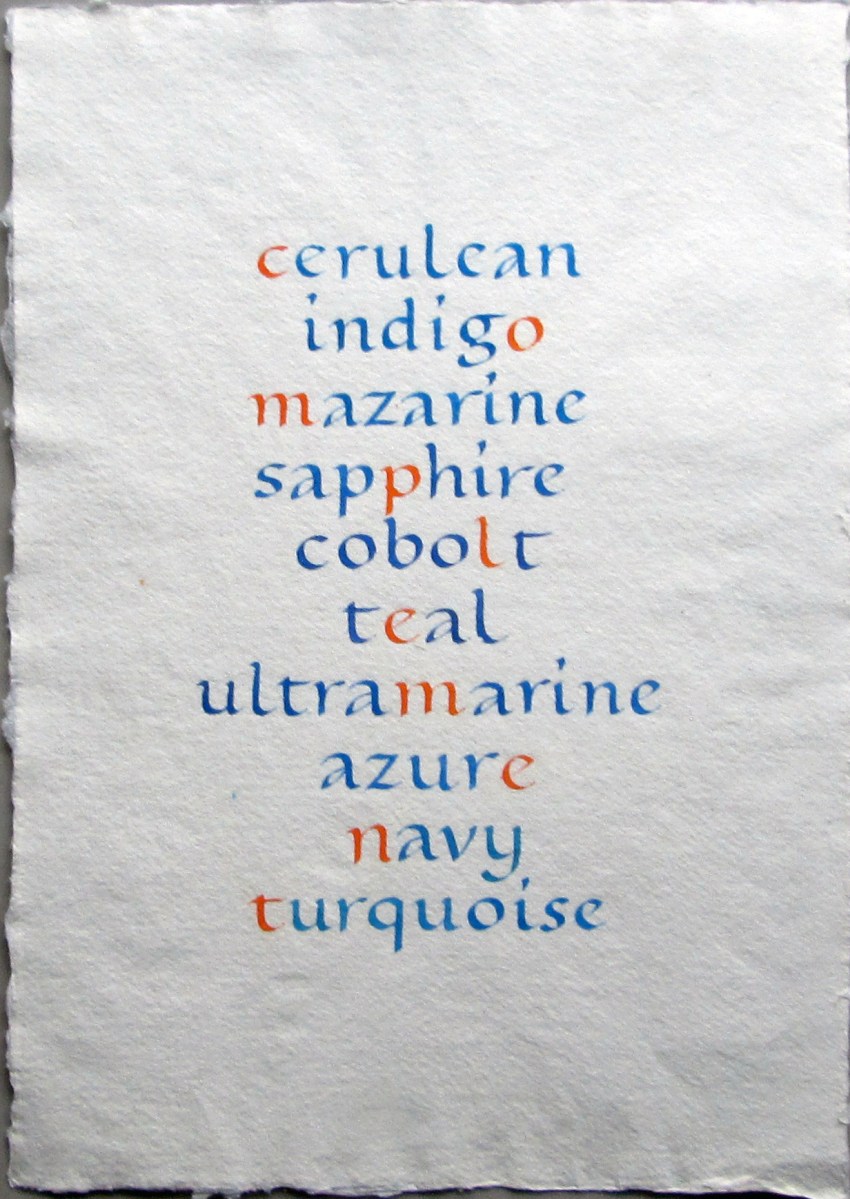 cerulean
indigo
mazarine
sapphire
cobolt
teal
ultramarine
azure
navy
turquoise